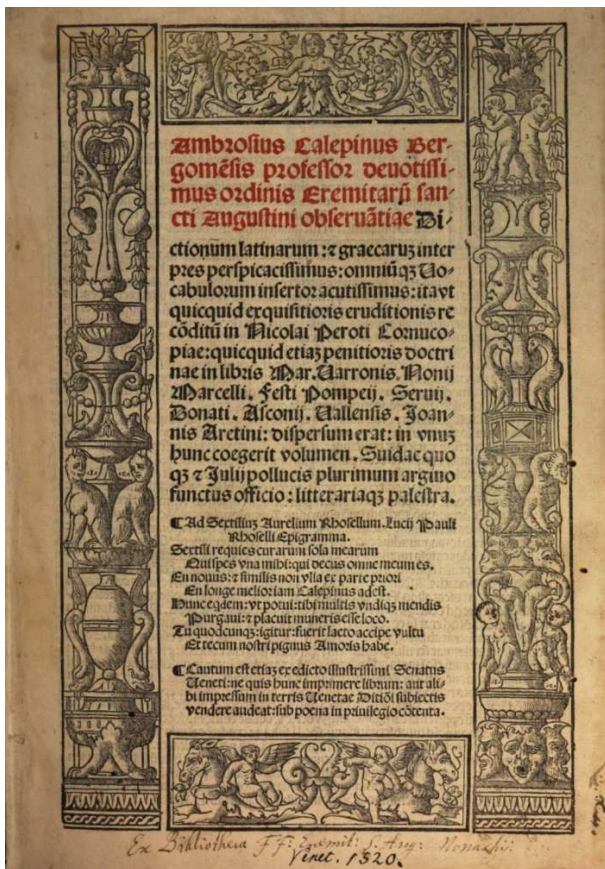 Ambrosius Calepinus Ber-
gomēsis professor deuotissi-
mus ordinis Eremitarū san-
cti Augustini obseruātiae Di-
ctionum latinarum: ⁊ graecaruz inter
pres perspicacissimus: omniūqꝫ Uo-
cabulorum insertor acutissimus: ita vt
quicquid exquisitioris eruditionis re
cōditū in Nicolai Peroti Cornuco-
piae: quicquid etiaz penitioris doctri
nae in libris Mar. Uarronis. Nonij
Marcelli. Festi Pompeij. Seruij.
Donati. Asconij. Uallensis. Joan-
nis Aretini: dispersum erat: in vnuz
hunc coegerit volumen. Suidae quo
qꝫ ⁊ Julij pollucis plurimum argiuo
functus officio: litterariaqꝫ palestra.
¶ Ad Sextiliuz Aurelium Rhosellum. Lucij Pauli
Rhoselli Epigramma.
Sextili requies curarum sola mearum
Qui spes vna mihi: qui decus omne meum es.
En nouus: ⁊ similis non vlla ex parte priori
En longe melior iam Calepinus adest.
Hunc eqdem: vt potui: tibi multis vndiqꝫ mendis
Purgaui: ⁊ placuit muneris esse loco.
Tu quodcunqꝫ: igitur: fuerit laeto accipe vultu
Et tecum nostri pignus Amoris habe.
¶ Cautum est etiaz ex edicto illustrissimi Senatus
Ueneti: ne quis hunc imprimere librum: aut ali-
bi impressum in terris Uenetae Ditiōi subiectis
vendere audeat: sub poena in priuilegio cōtenta.
Ex Bibliotheca F F: Eremit: S. Aug: Monachij.
Venet. 1520.